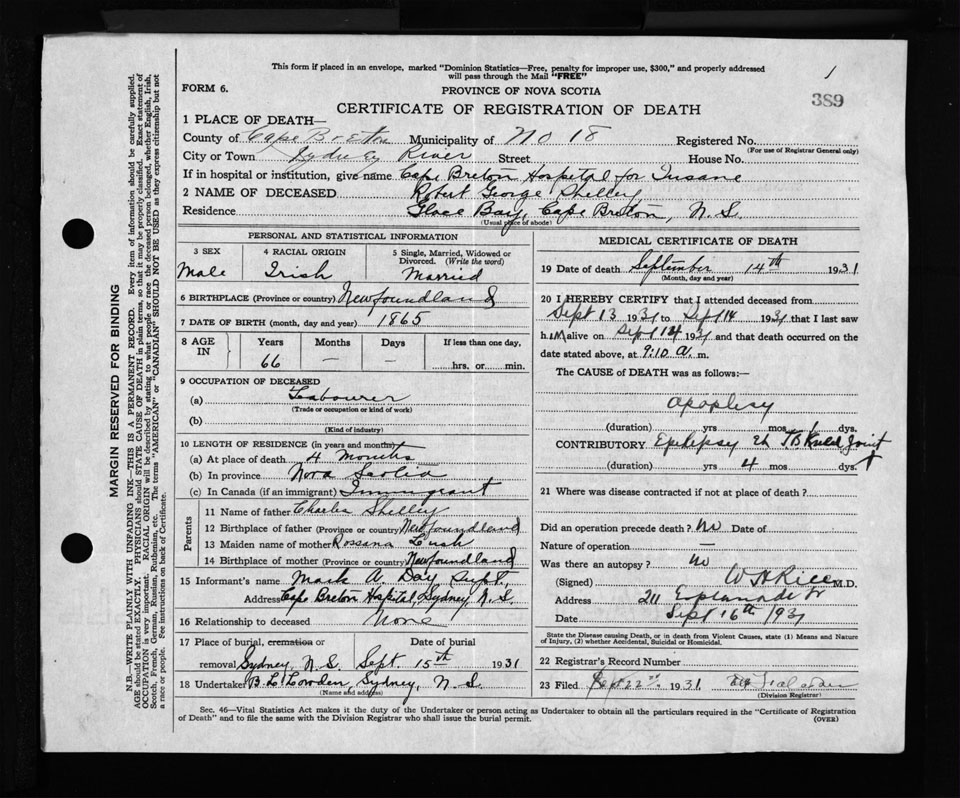 This form if placed in an envelope, marked "Dominion Statistics—Free, penalty for improper use, $300," and properly addressed
will pass through the Mail "FREE"
1
389
FORM 6. PROVINCE OF NOVA SCOTIA
CERTIFICATE OF REGISTRATION OF DEATH
1 PLACE OF DEATH—
County of Cape Breton Municipality of No 18 Registered No.
(For use of Registrar General only)
City or Town Sydney River Street House No.
If in hospital or institution, give name Cape Breton Hospital for Insane
2 NAME OF DECEASED Robert George Shelley
Residence Glace Bay, Cape Breton, N.S.
(Usual place of abode)
PERSONAL AND STATISTICAL INFORMATION
3 SEX Male
4 RACIAL ORIGIN Irish
5 Single, Married, Widowed or Divorced. (Write the word) Married
6 BIRTHPLACE (Province or country) Newfoundland
7 DATE OF BIRTH (month, day and year) 1865
8 AGE IN Years 66 Months — Days — If less than one day, hrs. or min.
9 OCCUPATION OF DECEASED
(a) Labourer
(Trade or occupation or kind of work)
(b)
(Kind of industry)
10 LENGTH OF RESIDENCE (in years and months)
(a) At place of death 4 Months
(b) In province Nova Scotia
(c) In Canada (if an immigrant) Immigrant
Parents
11 Name of father Charles Shelley
12 Birthplace of father (Province or country) Newfoundland
13 Maiden name of mother Rossana Lush
14 Birthplace of mother (Province or country) Newfoundland
15 Informant's name Mark A. Day Supt,
Address Cape Breton Hospital, Sydney, N.S.
16 Relationship to deceased None
17 Place of burial, cremation or removal Sydney, N.S. Date of burial Sept. 15th 1931
18 Undertaker B.L. Lowden, Sydney, N.S.
(Name and address)
MEDICAL CERTIFICATE OF DEATH
19 Date of death September 14th 1931
(Month, day and year)
20 I HEREBY CERTIFY that I attended deceased from
Sept 13 1931 to Sept 14 1931 that I last saw
h.im alive on Sept 14 1931 and that death occurred on the
date stated above, at 9:10 a. m.
The CAUSE of DEATH was as follows:—
apoplexy
(duration) yrs mos 1 dys.
CONTRIBUTORY Epilepsy TB Knee Joint
(duration) yrs 4 mos dys.
21 Where was disease contracted if not at place of death?
Did an operation precede death? no Date of
Nature of operation —
Was there an autopsy? no
(Signed) W H Rice M.D.
Address 211 Esplanade
Date Sept 16th 1931
State the Disease causing Death, or in death from Violent Causes, state (1) Means and Nature
of Injury, (2) whether Accidental, Suicidal or Homicidal.
22 Registrar's Record Number
23 Filed Sept 22nd 1931
(Division Registrar)
Sec. 46—Vital Statistics Act makes it the duty of the Undertaker or person acting as Undertaker to obtain all the particulars required in the "Certificate of Registration
of Death" and to file the same with the Division Registrar who shall issue the burial permit. (OVER)
MARGIN RESERVED FOR BINDING
N.B.—WRITE PLAINLY WITH UNFADING INK—THIS IS A PERMANENT RECORD. Every item of information should be carefully supplied.
AGE should be stated EXACTLY. PHYSICIANS should STATE CAUSE OF DEATH in plain terms, so that it may be properly classified. Exact statement of
OCCUPATION is very important. RACIAL ORIGIN will be described by stating to what people or race the deceased person belonged, whether English, Irish,
Scotch, French, German, Russian, Ruthenian, etc. The terms "AMERICAN" or "CANADIAN" SHOULD NOT BE USED as they express citizenship but not
a race or people. Fee instructions on back of Certificate.